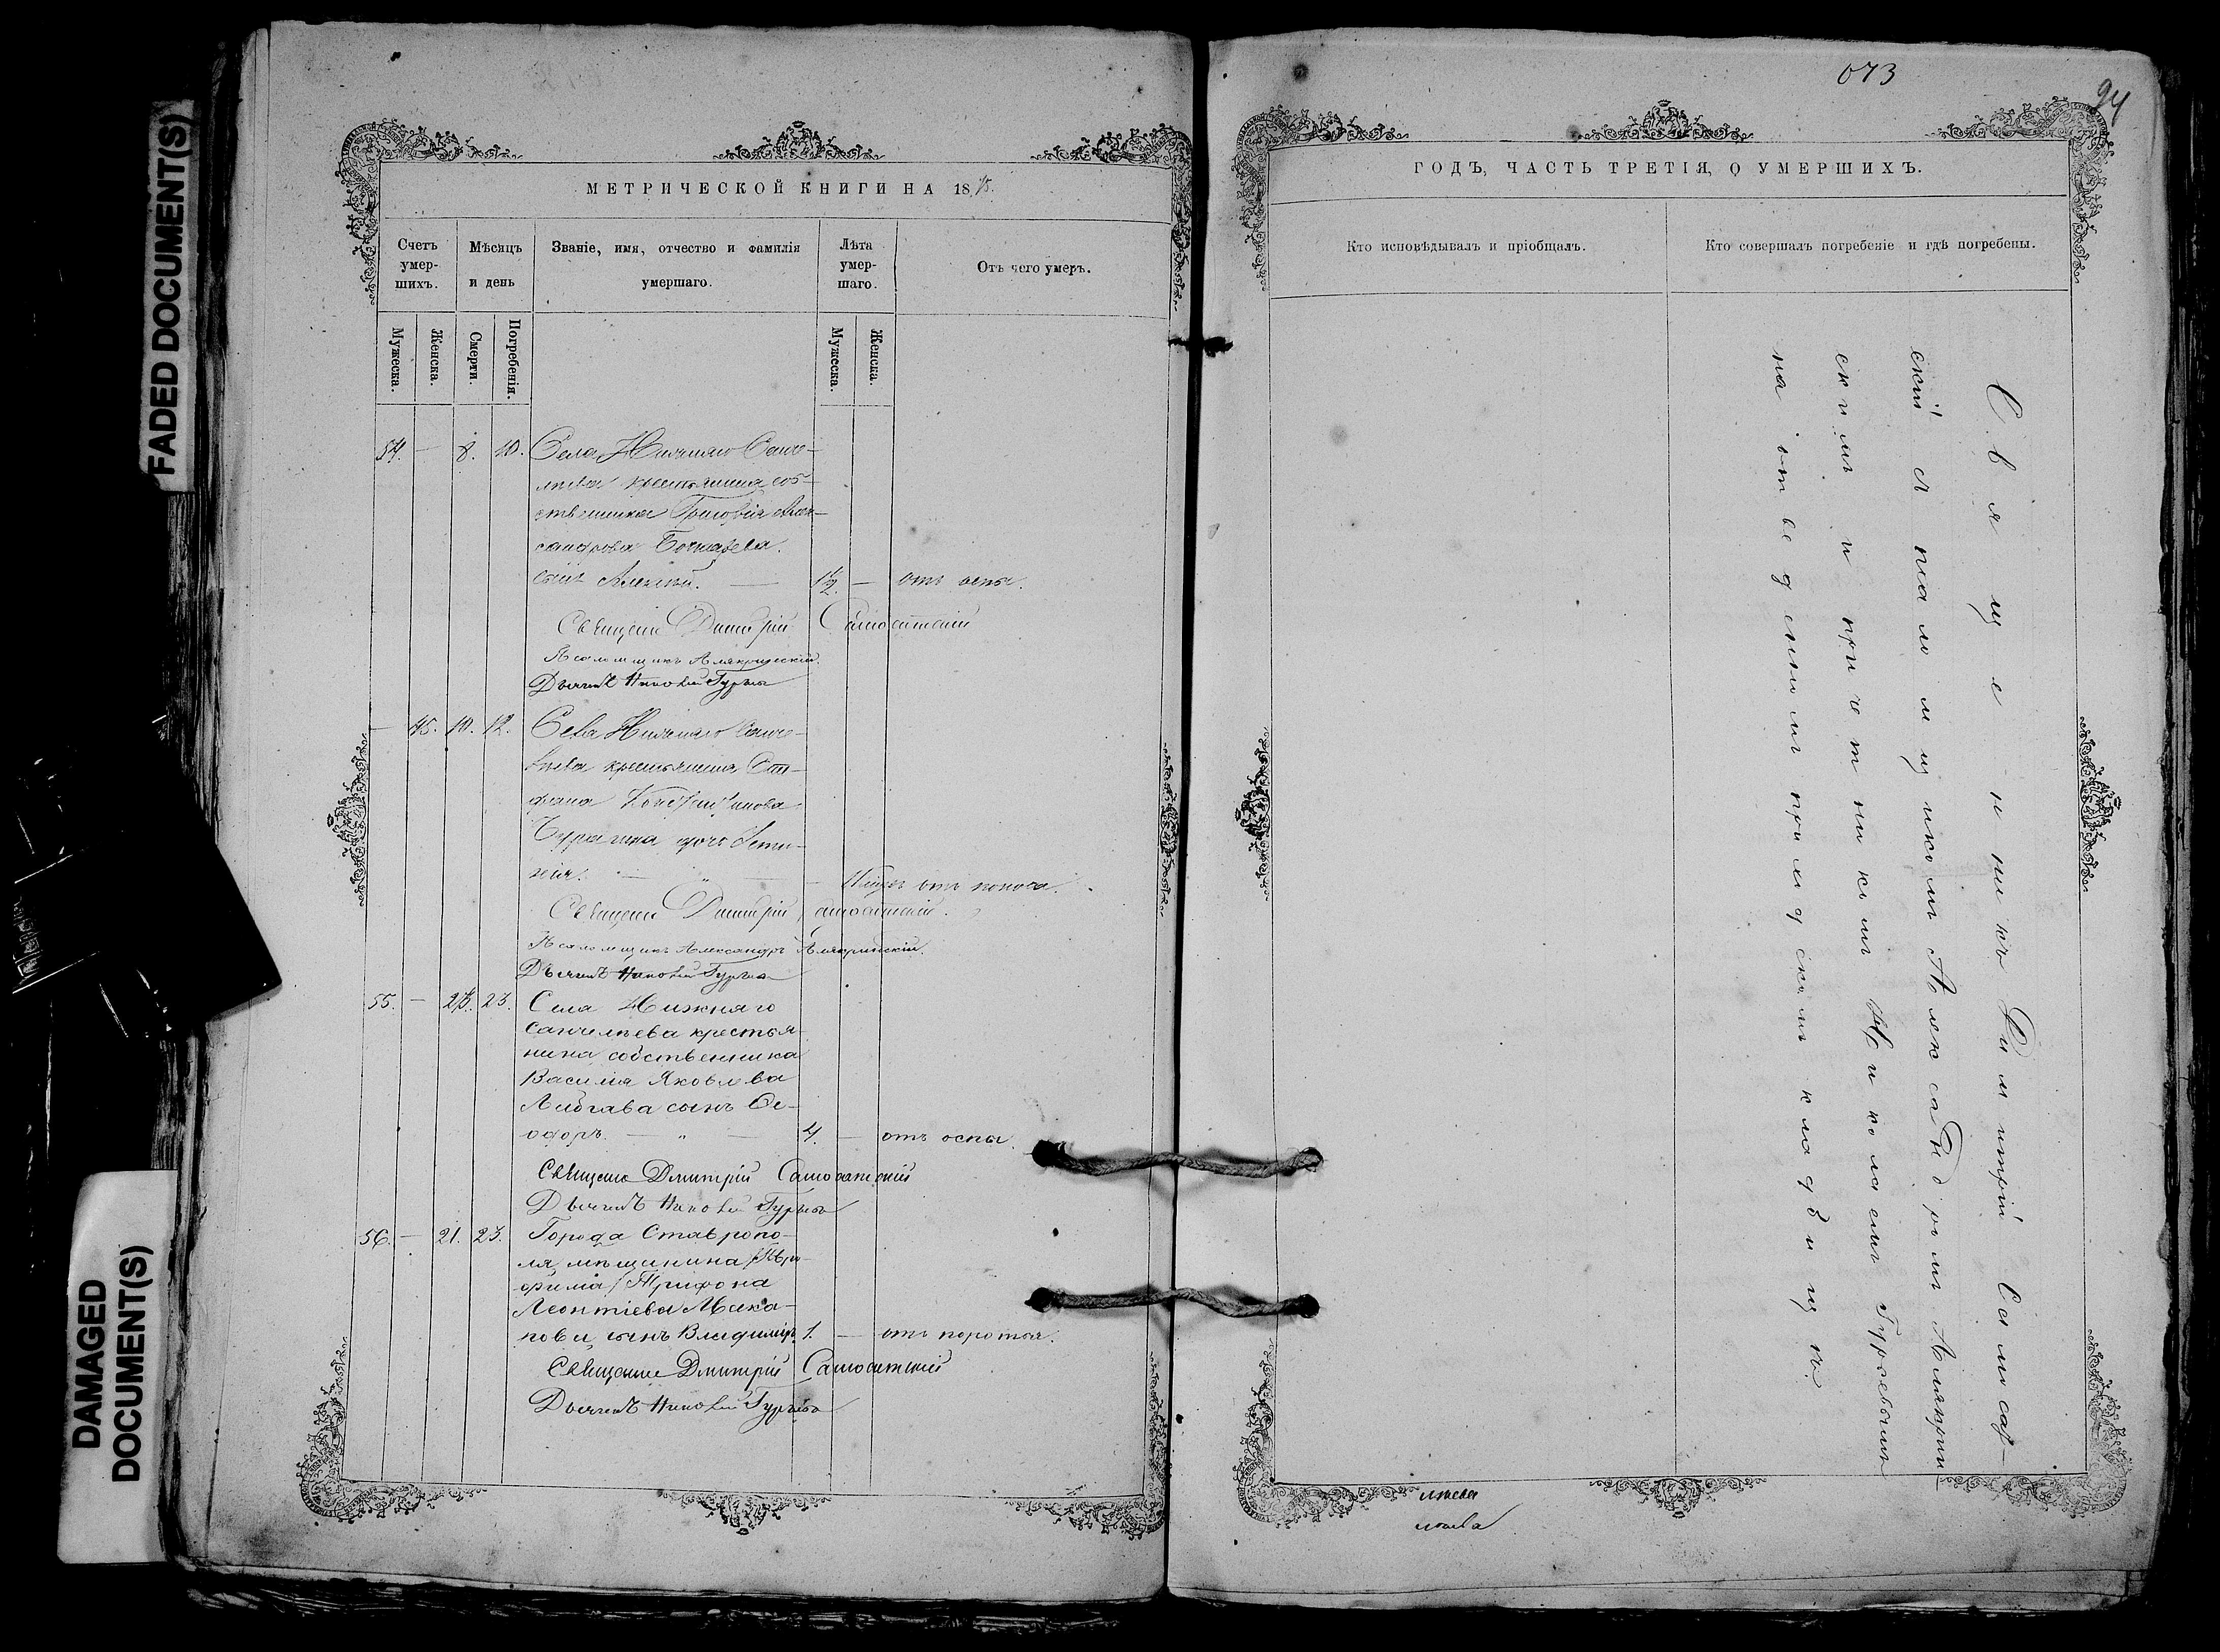 FADED DOCUMENT(S)
DAMAGED
DOCUMENT(S)
МЕТРИЧЕСКОЙ КНИГИ НА 1875.
Счетъ умер-шихъ.
Мѣсяцъ и день
Званіе, имя, отчество и фамилія умершаго.
Лѣта умер-шаго.
Отъ чего умеръ.
Мужеска.
Женска.
Смерти.
Погребенія.
Мужеска.
Женска.
54. — 8. 10. Села Нижняго Санче-
лѣева крестьянина соб-
ственника Григорія Алек-
сандрова
сынъ Алексѣй. — 1½. — отъ оспы.
Священ. Димитрій Самосатскій
Псаломщикъ Алякринскій.
Дьячекъ Николай Гурьевъ
— 45. 10. 12. Села Нижняго Санче-
лѣева крестьянина Сте-
фана Константинова
дочь
— отъ поноса.
Священ. Димитрій Самосатскій.
Псаломщикъ Александръ Алякринскій.
Дьячекъ Николай Гурьевъ
55. — 23. Села Нижняго
Санчелѣева крестья-
нина собственника
Василія Яковлева
сынъ Ѳе-
одоръ. — „ — 4. — отъ оспы.
Священ. Дмитрій Самосатскій
Дьячекъ Николай Гурьевъ
56. — 21. 23. Города Ставропо-
ля, мѣщанина
/Трифона
Леонтіева
сынъ Владиміръ 1. —
Священ. Дмитрій Самосатскій
Дьячекъ Николай Гурьевъ
073
94
ГОДЪ, ЧАСТЬ ТРЕТІЯ, О УМЕРШИХЪ.
Кто исповѣдывалъ и пріобщалъ.
Кто совершалъ погребеніе и гдѣ погребены.
Священникъ Димитрій Самосат-
скій съ псаломщикомъ Александромъ Алякрин-
скимъ и причетникомъ Николаемъ Гурьевымъ
на отведенномъ приходскомъ кладбищѣ.